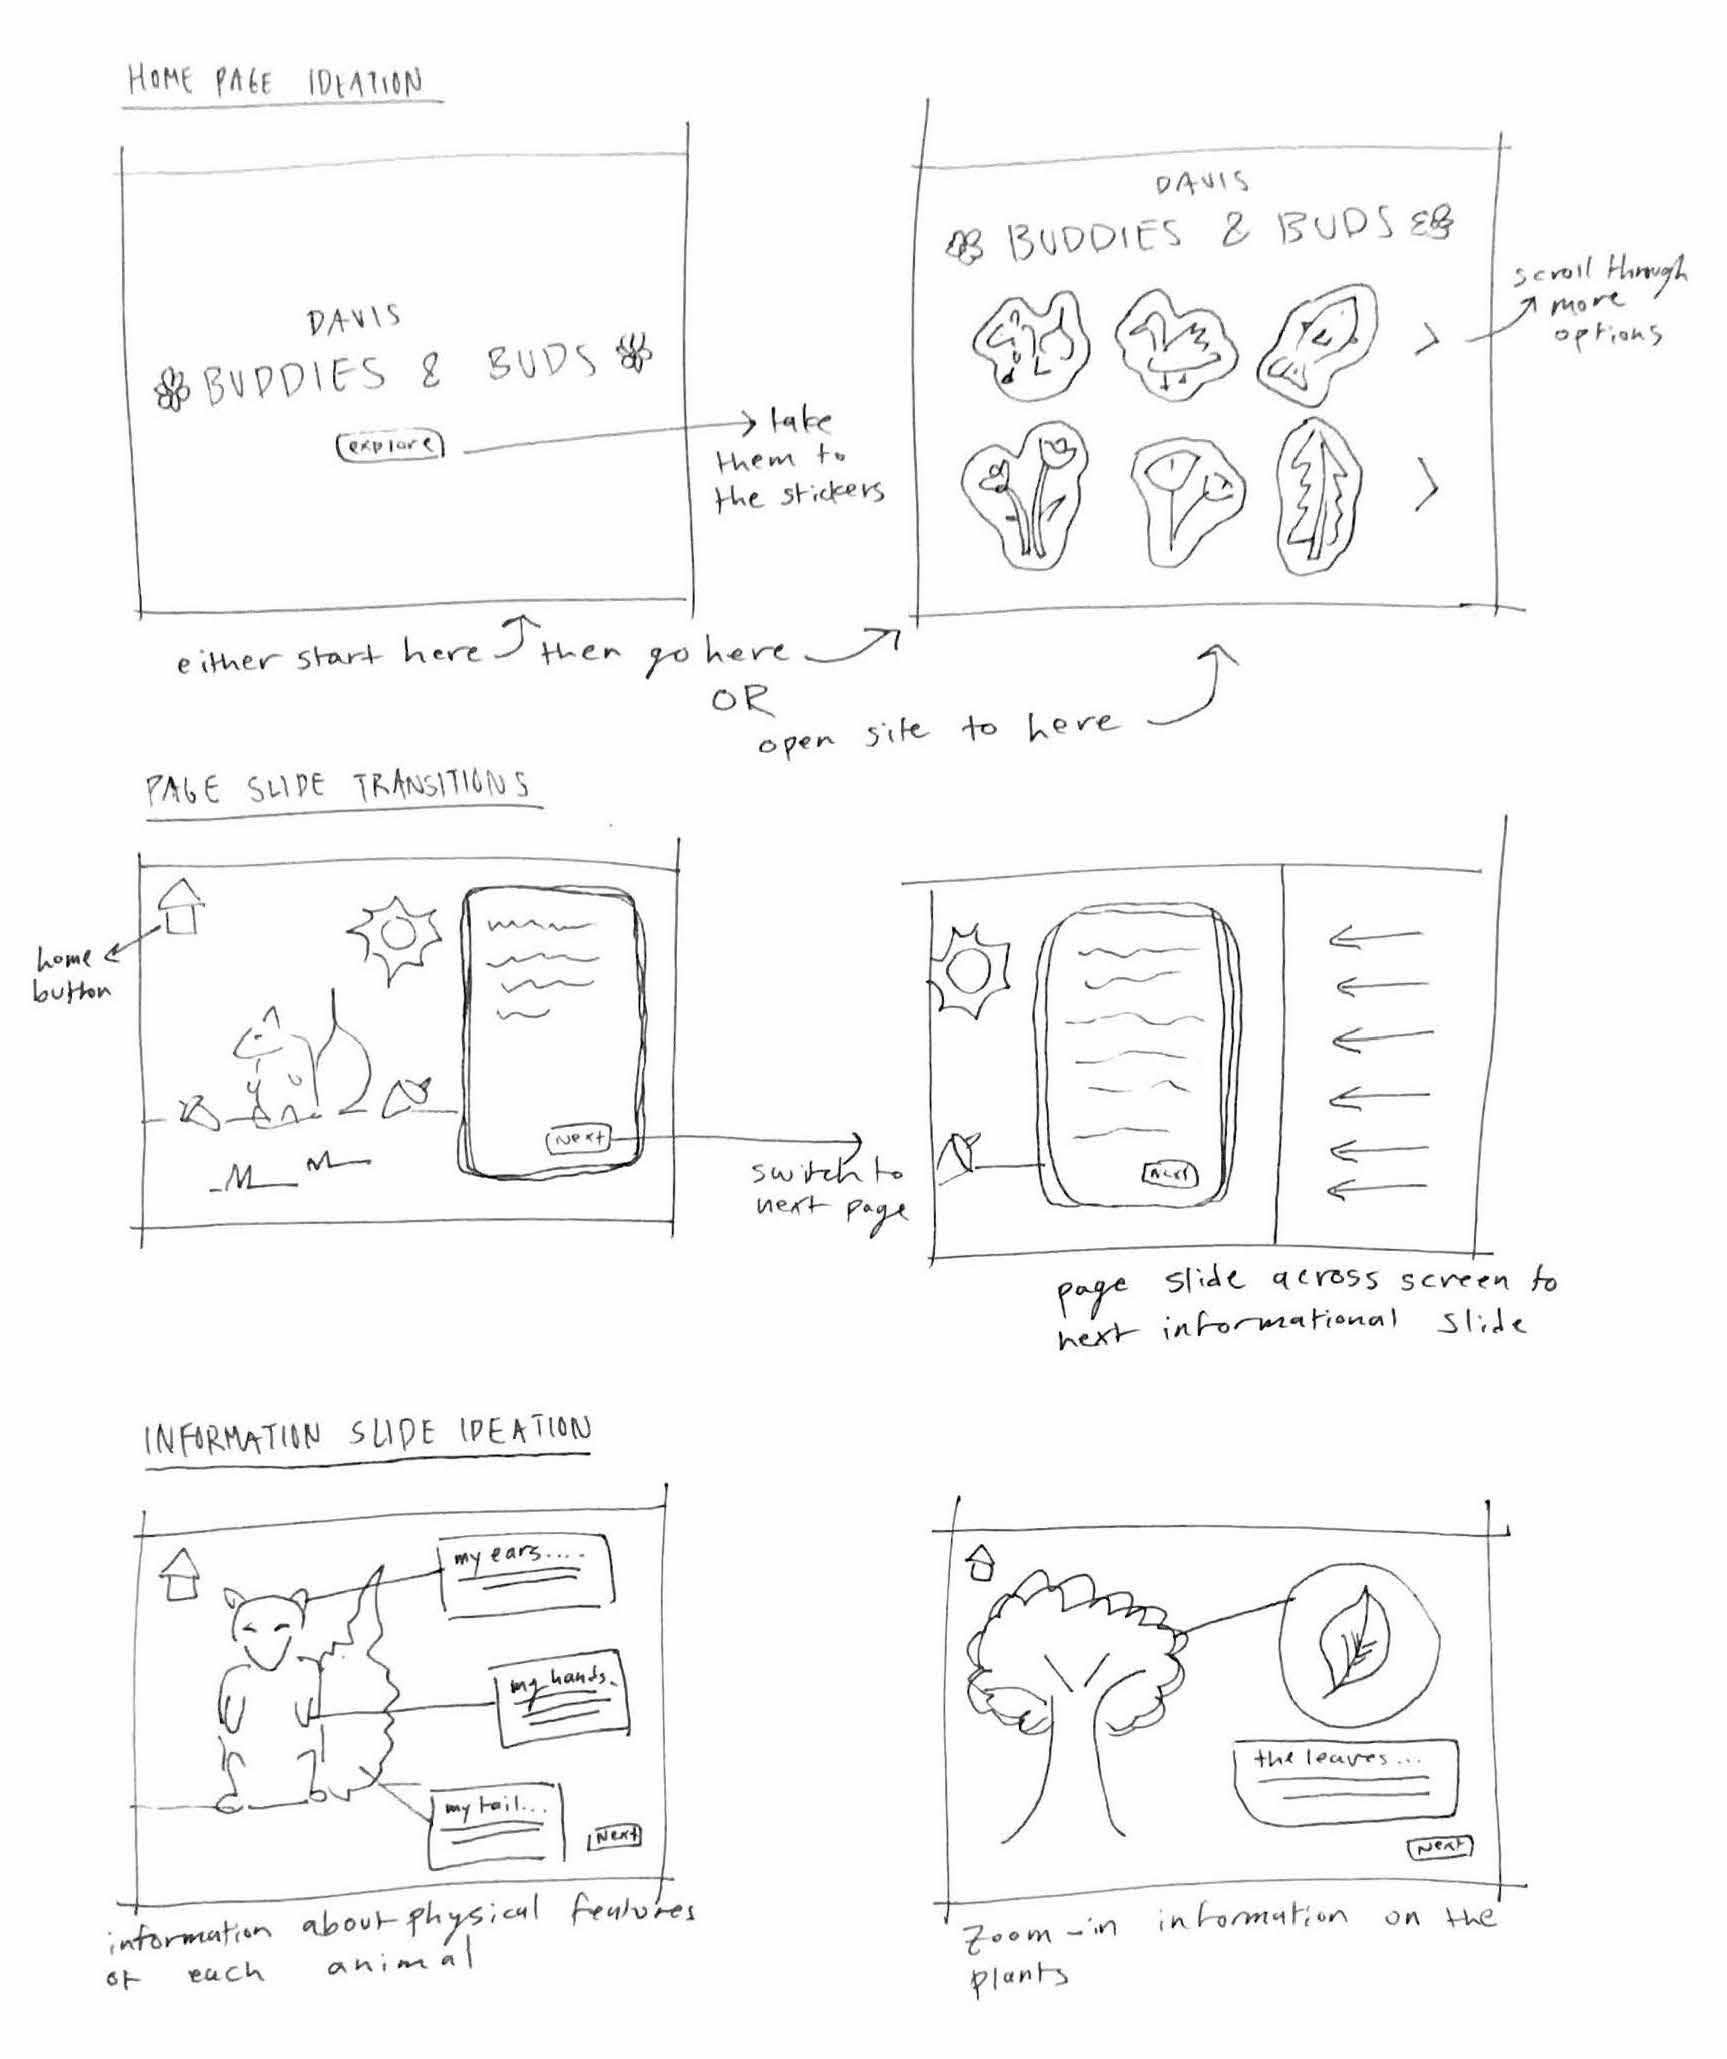 HOME PAGE IDEATION
DAVIS
BUDDIES & BUDS
explore
take
them to
the stickers
DAVIS
BUDDIES & BUDS
scroll through
more
options
either start here then go here
OR
open site to here
PAGE SLIDE TRANSITIONS
home
button
Next
switch to
next page
Next
page slide across screen to
next informational slide
INFORMATION SLIDE IDEATION
my ears....
my hands.
my tail...
Next
information about physical features
of each animal
the leaves...
Next
Zoom-in information on the
plants